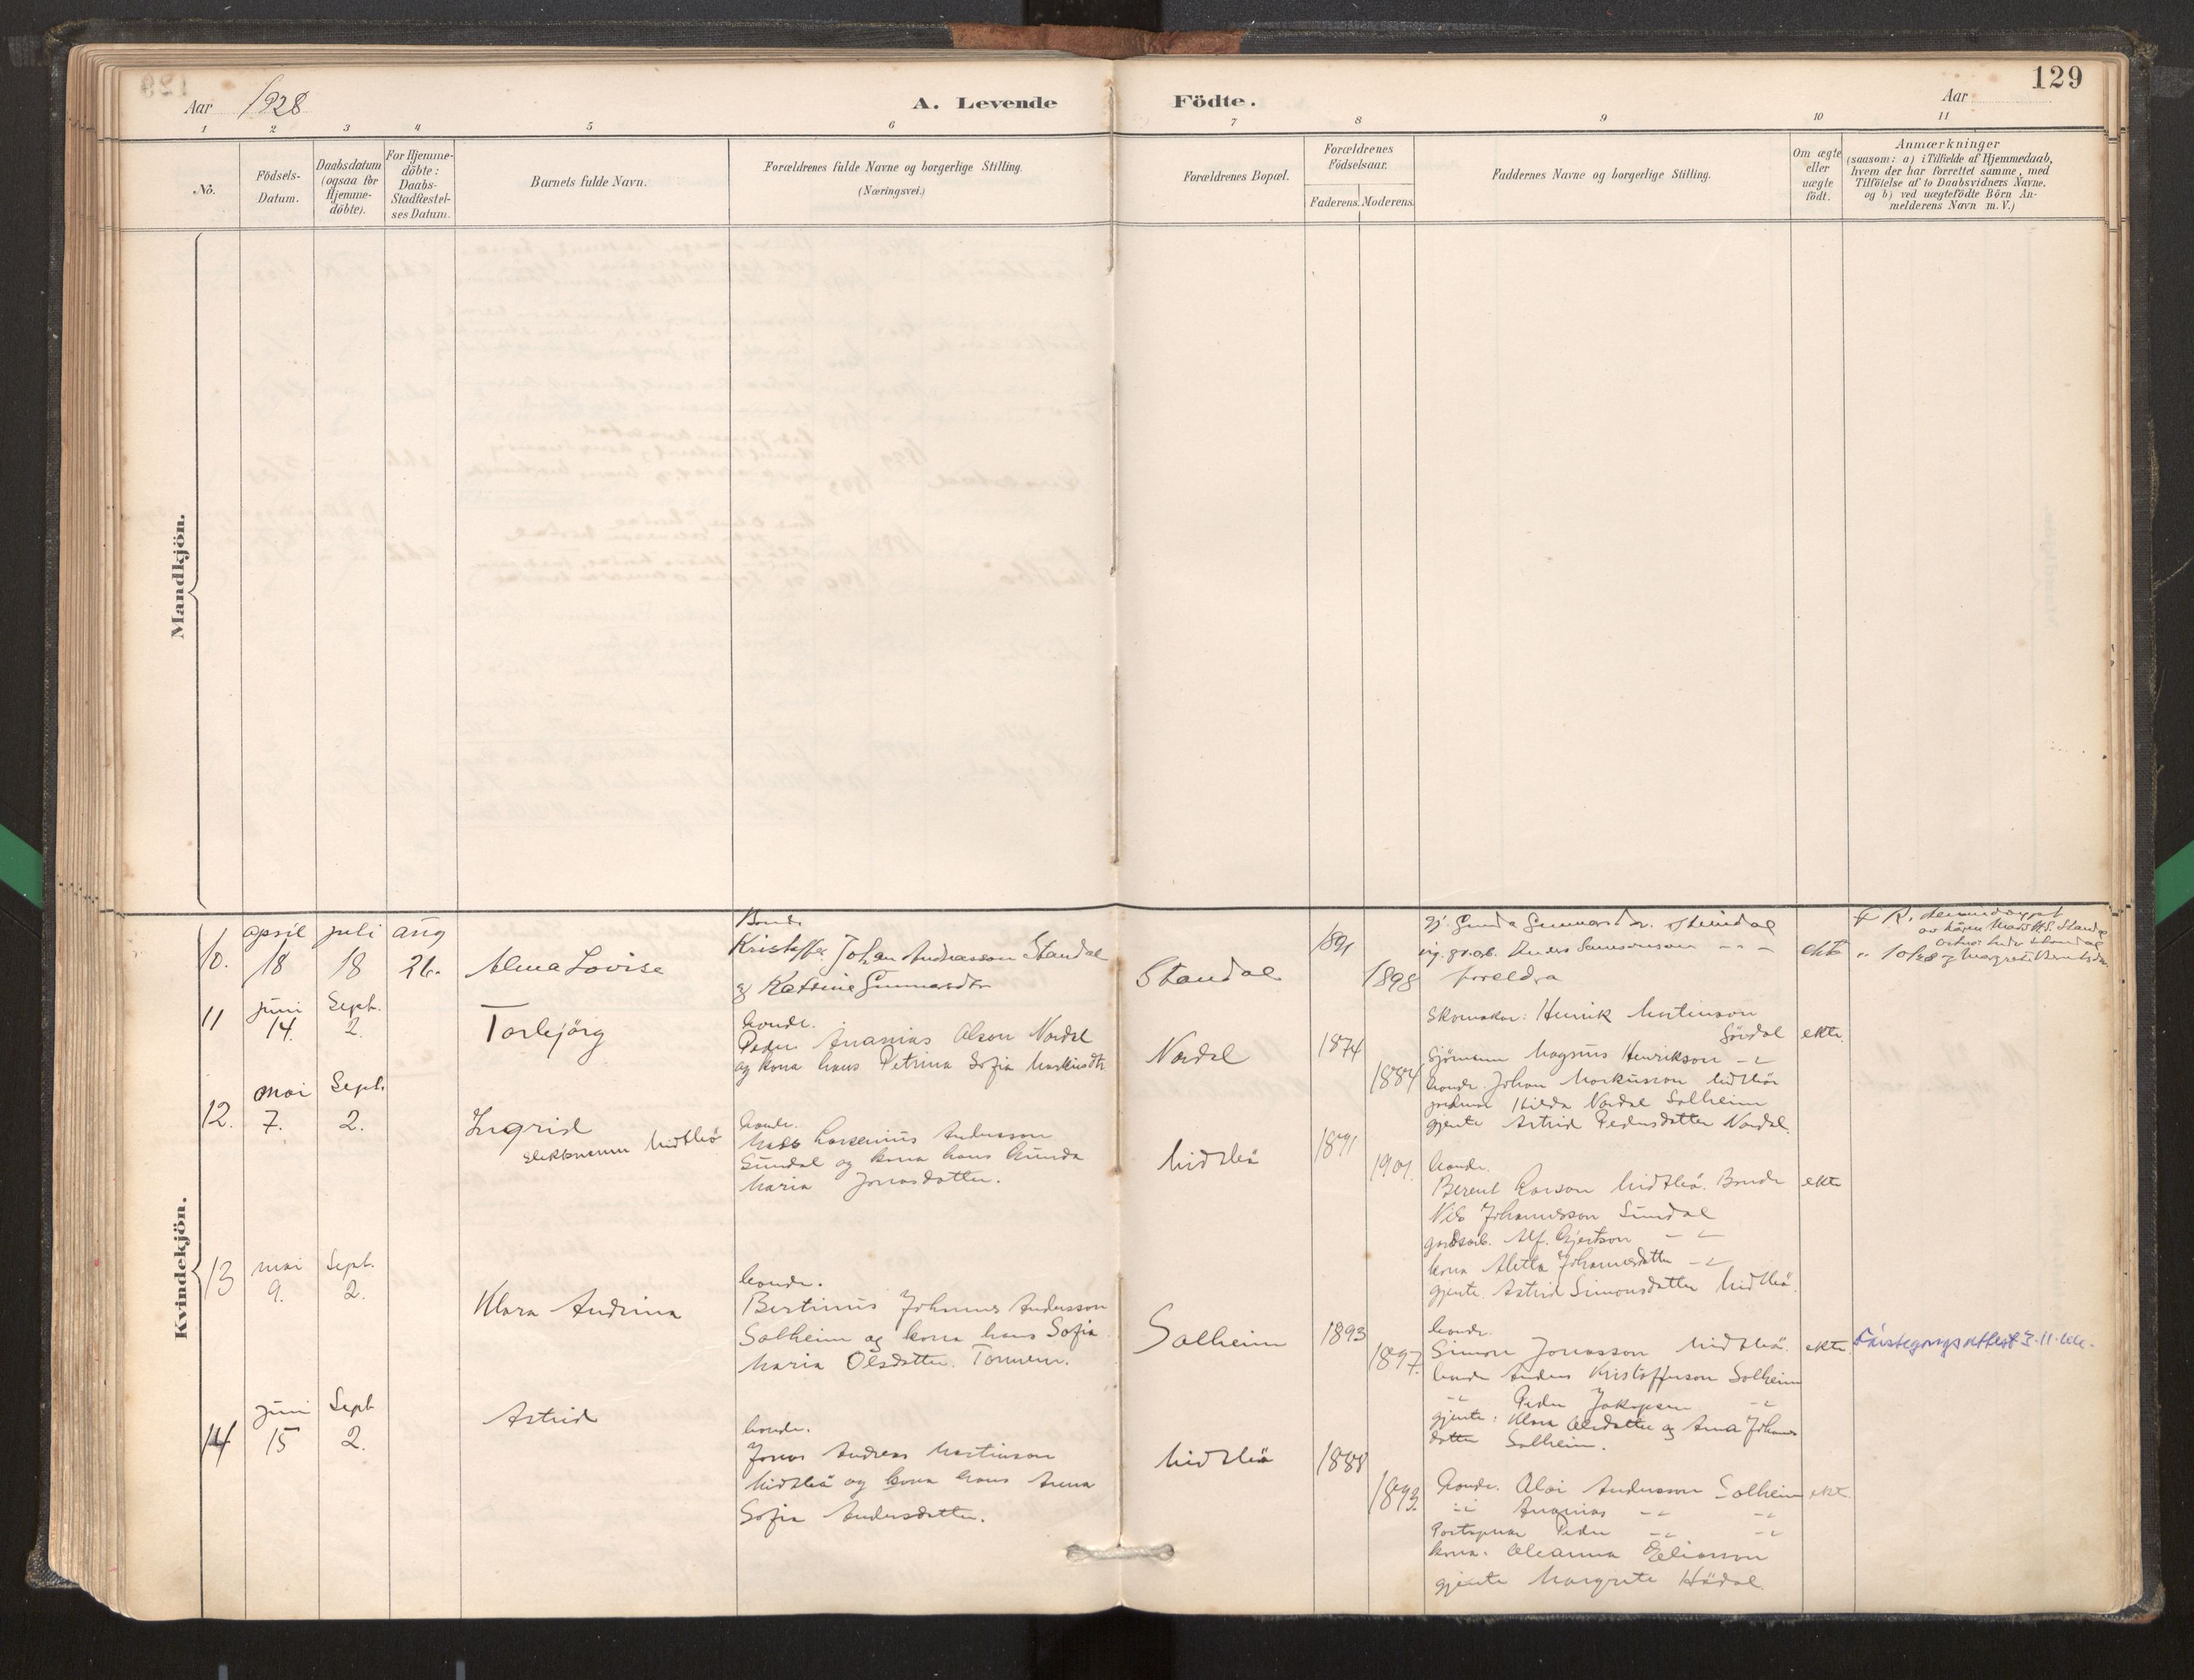 129
Aar 1928
A. Levende Födte.
Aar
1 2 3 4 5 6 7 8 9 10 11
No.
Födsels-
Datum.
Daabsdatum
(ogsaa for
Hjemme-
döbte).
For Hjemme-
döbte:
Daabs-
Stadfæstel-
ses Datum.
Barnets fulde Navn.
Forældrenes fulde Navne og borgerlige Stilling.
(Næringsvei.)
Forældrenes Bopæl.
Forældrenes
Födselsaar.
Faderens. Moderens.
Faddernes Navne og borgerlige Stilling.
Om ægte
eller
uægte
födt.
Anmærkninger
(saasom: a) i Tilfælde af Hjemmedaab,
hvem der har forrettet samme, med
Tilföielse af to Daabsvidners Navne,
og b) ved uægtefödte Börn An-
melderens Navn m. V.)
Mandkjön.
Kvindekjön.
10.
april
18
juli
18
aug
26.
Alma Lovise
Bonde
Kristoffer Johan Andreasson Standal
og Katrine Gunnarsdtr
Standal
1891
1898
gj. Gunda Gunnarsdr.
Anders Samsonson
foreldra
ekte
11
juni
14.
Sept.
2.
Torbjörg
bonde.
Peder Ananias Olson Nordal
og kona hans Petrina Sofia Markusdtr
Nordal
1874
1884
Skomaker: Henrik Martinson
Sördal
Sjömann Magnus Henrikson
bonde. Johan Markusson Midtbö
Hilda Nordal Solheim
gjente Astrid Pedersdatter Nordal.
ekte.
12.
mai
7.
Sept.
2.
Ingrid
slektnamn Midtbö
bonde.
Mads Larsenius Andersson
Sundal og kona hans Gunda
Maria Jonasdatter.
Midtbö
1891
1901.
bonde.
Berent Larson Midtbö. Bonde
Nils Johannesson Sundal
gardsarb. Alf. Gjertson
kona Aletta Johannesdatter
gjente. Astrid Simonsdatter Midtbö.
ekte
13
mai
9.
Sept.
2.
Klara Andrina
bonde.
Bertinus Johannes Andersson
Solheim og kona hans Sofia
Maria Olsdatter.
Solheim
1893
1897.
bonde.
Simon Jonasson Midtbö.
bonde Anders Kristofferson Solheim
Peder Jakopsen
gjente: Klara Olsdatter og Anna Johannes
datter Solheim.
ekte
14
juni
15
Sept
2.
Astrid
bonde.
Jonas Andreas Martinson
Midtbö og kona hans Anna
Sofia Andersdatter.
Midtbö
1888
1893.
bonde. Andersson Solheim
Ananias
Peder
kona. Oleanna Eliasson
gjente Margrete Hödal.
ekte.